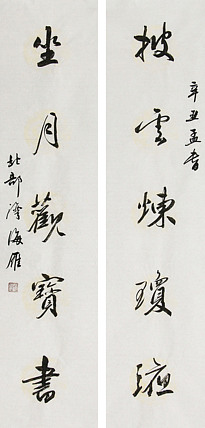 辛丑孟春
披雲煉瓊液
坐月觀寶書
北部海雁